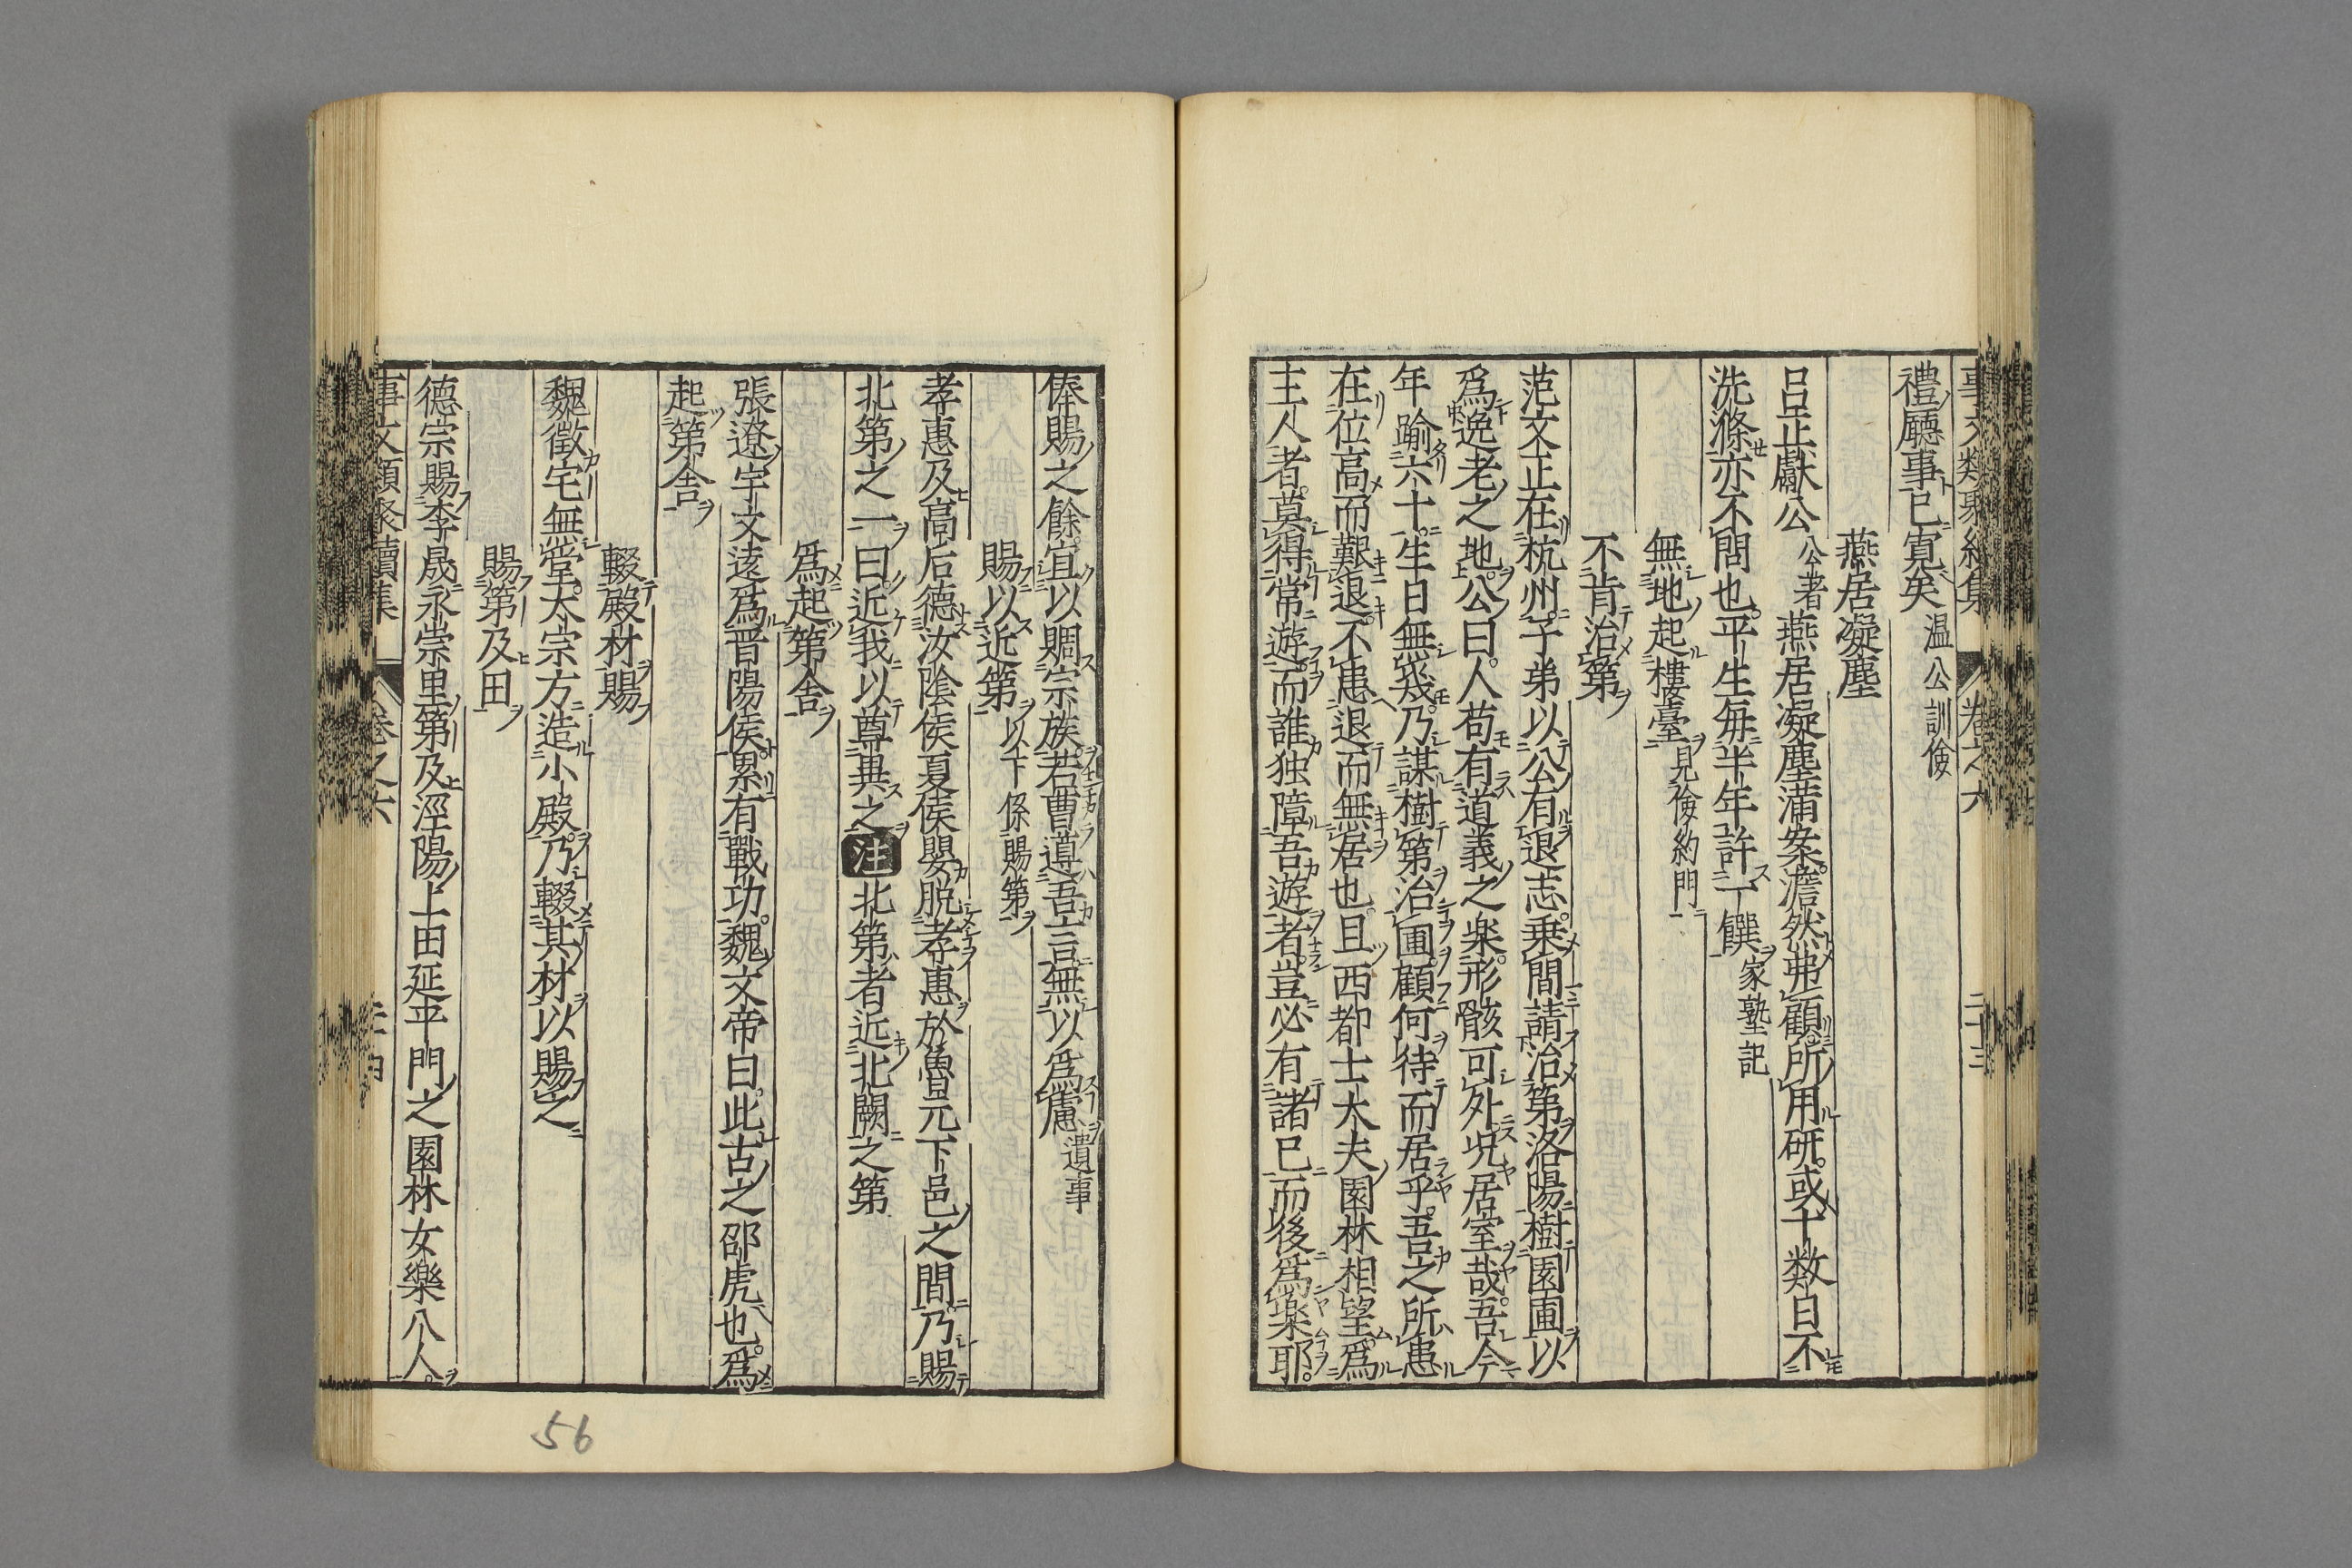 事文類聚續集 卷之六 二十三
禮廳事已寛矣 温公訓儉
燕居凝塵
呂正獻公 公著 燕居凝塵滿案澹然弗顧所用研或十数日不
洗滌亦不問也平生每半年許一饌 家塾記
無地起樓臺 見儉約門
不肯治第
范文正在杭州子弟以公有退志乗間請治第洛陽樹園圃以
爲逸老之地公曰人苟有道義之楽形骸可外况居室哉吾今
年踰六十生日無幾乃謀樹第治圃顧何待而居乎吾之所患
在位高而艱退不患退而無居也且西都士大夫園林相望爲
主人者莫得常遊而誰独障吾遊者豈必有諸已而後爲楽耶
俸賜之餘宜以賙宗族若曹遵吾言無以爲慮 遺事
賜以近第 以下係賜第
孝惠及高后德汝陰侯夏侯嬰脱孝惠於魯元下邑之間乃賜
北第之一曰近我以尊異之 注 北第者近北闕之第
爲起第舍
張遼字文遠爲晋陽侯累有戰功魏文帝曰此古之邵虎也爲
起第舍
輟殿材賜
魏徵宅無堂太宗方造小殿乃輟其材以賜之
賜第及田
德宗賜李晟永崇里第及涇陽上田延平門之園林女樂八人
事文類聚續集 卷之六
56